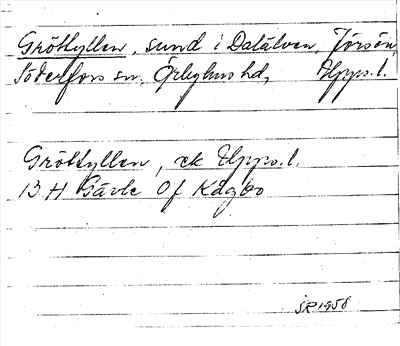 Gröttyllen, sund i Dalälven, Jörsön,
Söderfors sn, Örbyhus hd, Upps. l.
Gröttyllen, ek Upps. l.
13 H Gävle 0f Kågbo
SR 1958